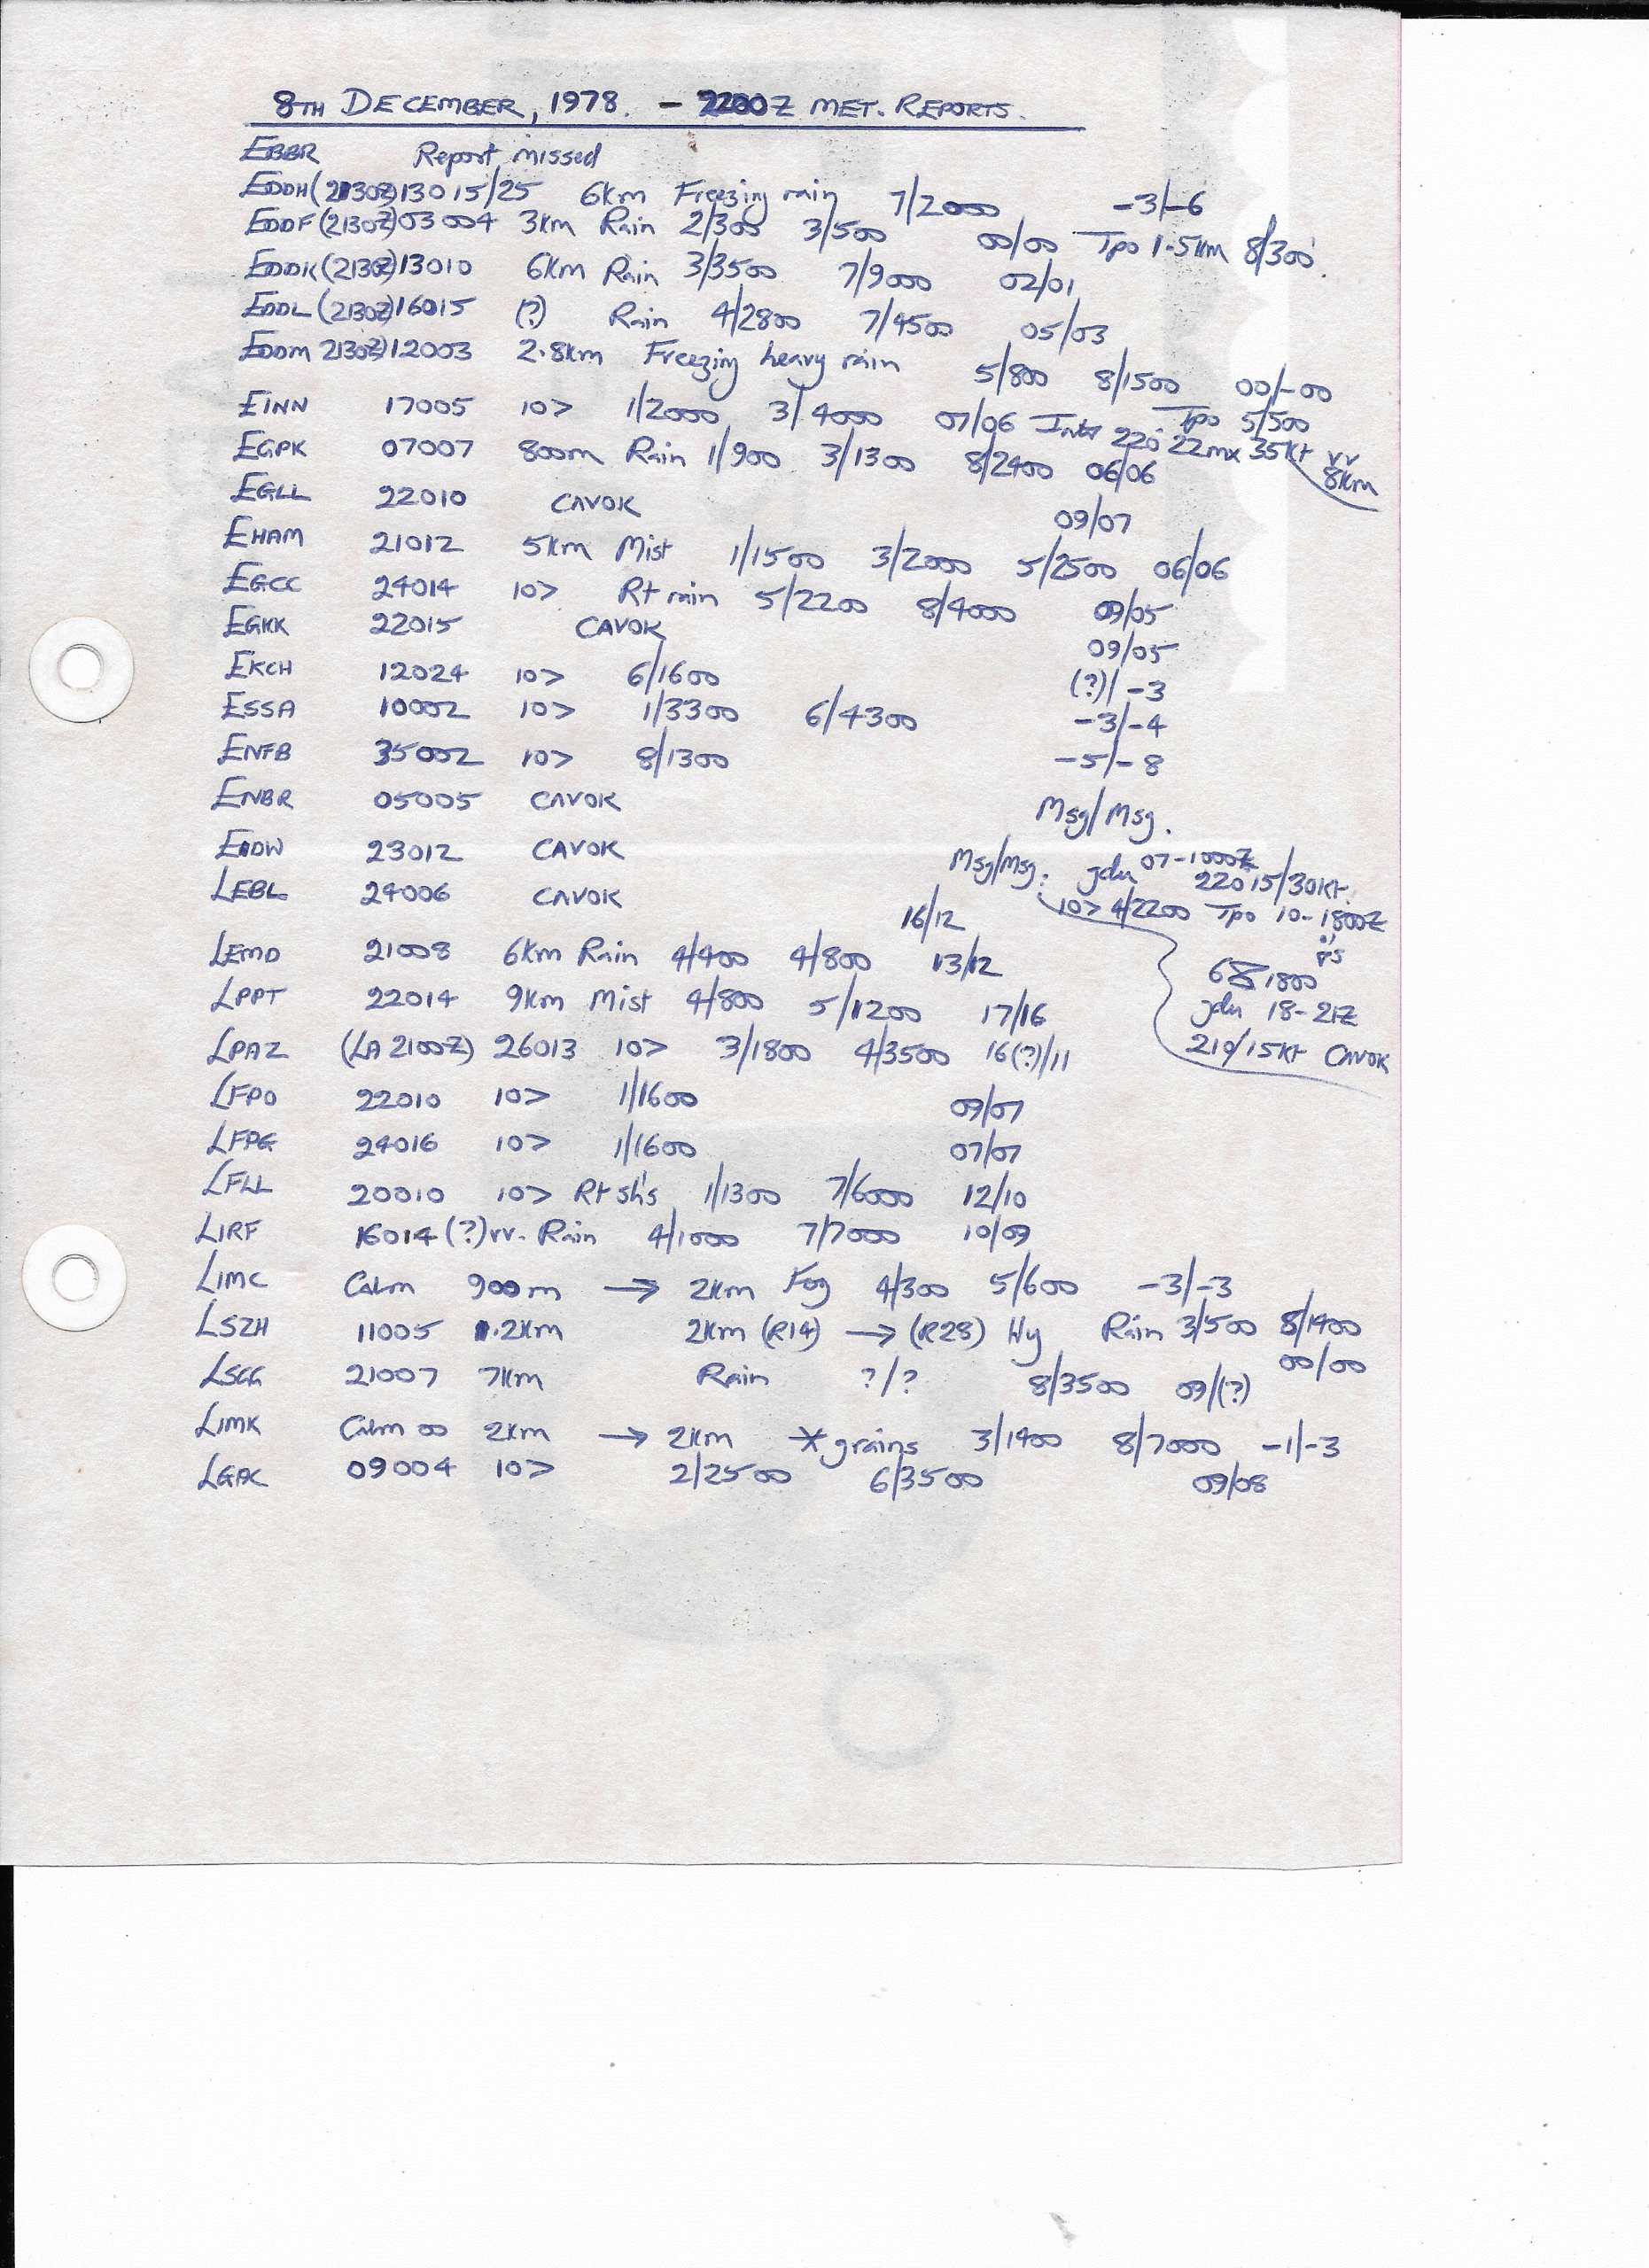 8TH DECEMBER, 1978. - 2200Z MET. REPORTS.
EBBR Report missed
EDDH (2130Z) 13015/25 6km Freezing rain 7/2000 -3/-6
EDDF (2130Z) 03004 3km Rain 2/300 3/500 00/00 Tpo 1.5km 8/300'.
EDDK (2130Z) 13010 6km Rain 3/3500 7/9000 02/01
EDDL (2130Z) 16015 (?) Rain 4/2800 7/4500 05/03
EDDM 2130Z) 12003 2.8km Freezing heavy rain 5/800 8/1500 00/-00
Tpo 5/500
EINN 17005 10> 1/2000 3/4000 07/06 Inter 220° 22mx 35kt vv 8km
EGPK 07007 800m Rain 1/900 3/1300 8/2400 06/06
EGLL 22010 CAVOK 09/07
EHAM 21012 5km Mist 1/1500 3/2000 5/2500 06/06
EGCC 24014 10> Rt rain 5/2200 8/4000 09/05
EGKK 22015 CAVOK 09/05
EKCH 12024 10> 6/1600 (?)/-3
ESSA 10002 10> 1/3300 6/4300 -3/-4
ENFB 35002 10> 8/1300 -5/-8
ENBR 05005 CAVOK Msg/Msg.
EIDW 23012 CAVOK Msg/Msg. gdu 07-1000Z
22015/30kt.
10> 4/2200 Tpo 10-1800Z
1800
gdu 18-21Z
210/15kt CAVOK
LEBL 24006 CAVOK 16/12
LEMD 21008 6km Rain 4/400 4/800 13/12
LPPT 22014 9km Mist 4/800 5/1200 17/16
LPAZ (LA 2100Z) 26013 10> 3/1800 4/3500 16(?)/11
LFPO 22010 10> 1/1600 09/07
LFPG 24016 10> 1/1600 07/07
LFLL 20010 10> Rt sh's 1/1300 7/6000 12/10
LIRF 16014 (?)vv. Rain 4/1000 7/7000 10/09
LIMC Calm 900m → 2km Fog 4/300 5/600 -3/-3
LSZH 11005 1.2km 2km (R14) → (R28) Hy Rain 3/500 8/1400
00/00
LSGG 21007 7km Rain ?/? 8/3500 09/(?)
LIMK Calm 00 2km → 2km * grains 3/1400 8/7000 -1/-3
LGAC 09004 10> 2/2500 6/3500 09/08